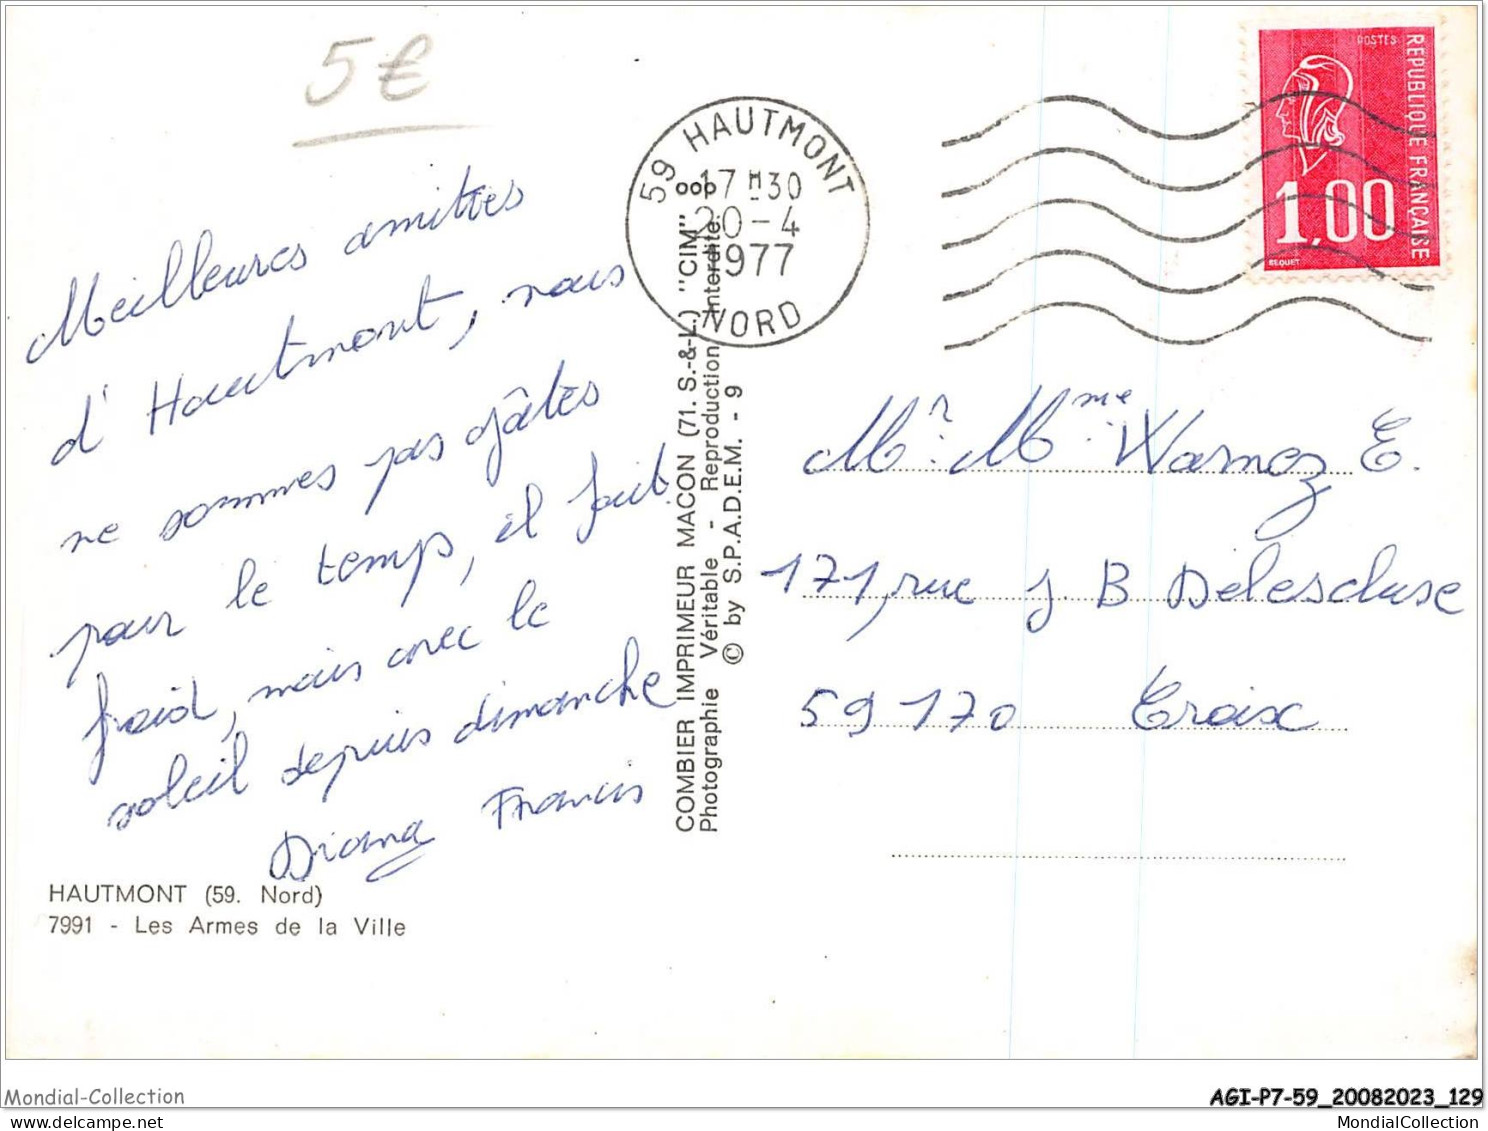 5€
Meilleures amitiés
d'Hautmont, nous
ne sommes pas gâtés
pour le temps, il fait
froid, mais avec le
soleil depuis dimanche
Diana Francis
HAUTMONT (59. Nord)
7991 - Les Armes de la Ville
COMBIER IMPRIMEUR MACON (71. S.-&-L.) "CIM"
Photographie Véritable - Reproduction Interdite
© by S.P.A.D.E.M. - 9
59 HAUTMONT
17 H 30
20-4
1977
NORD
POSTES
REPUBLIQUE FRANÇAISE
1,00
BEQUET
Mr. Mme. Warnez E.
171, rue J. B Delescluse
59170 Croix
Mondial-Collection
AGI-P7-59_20082023_129
MondialCollection